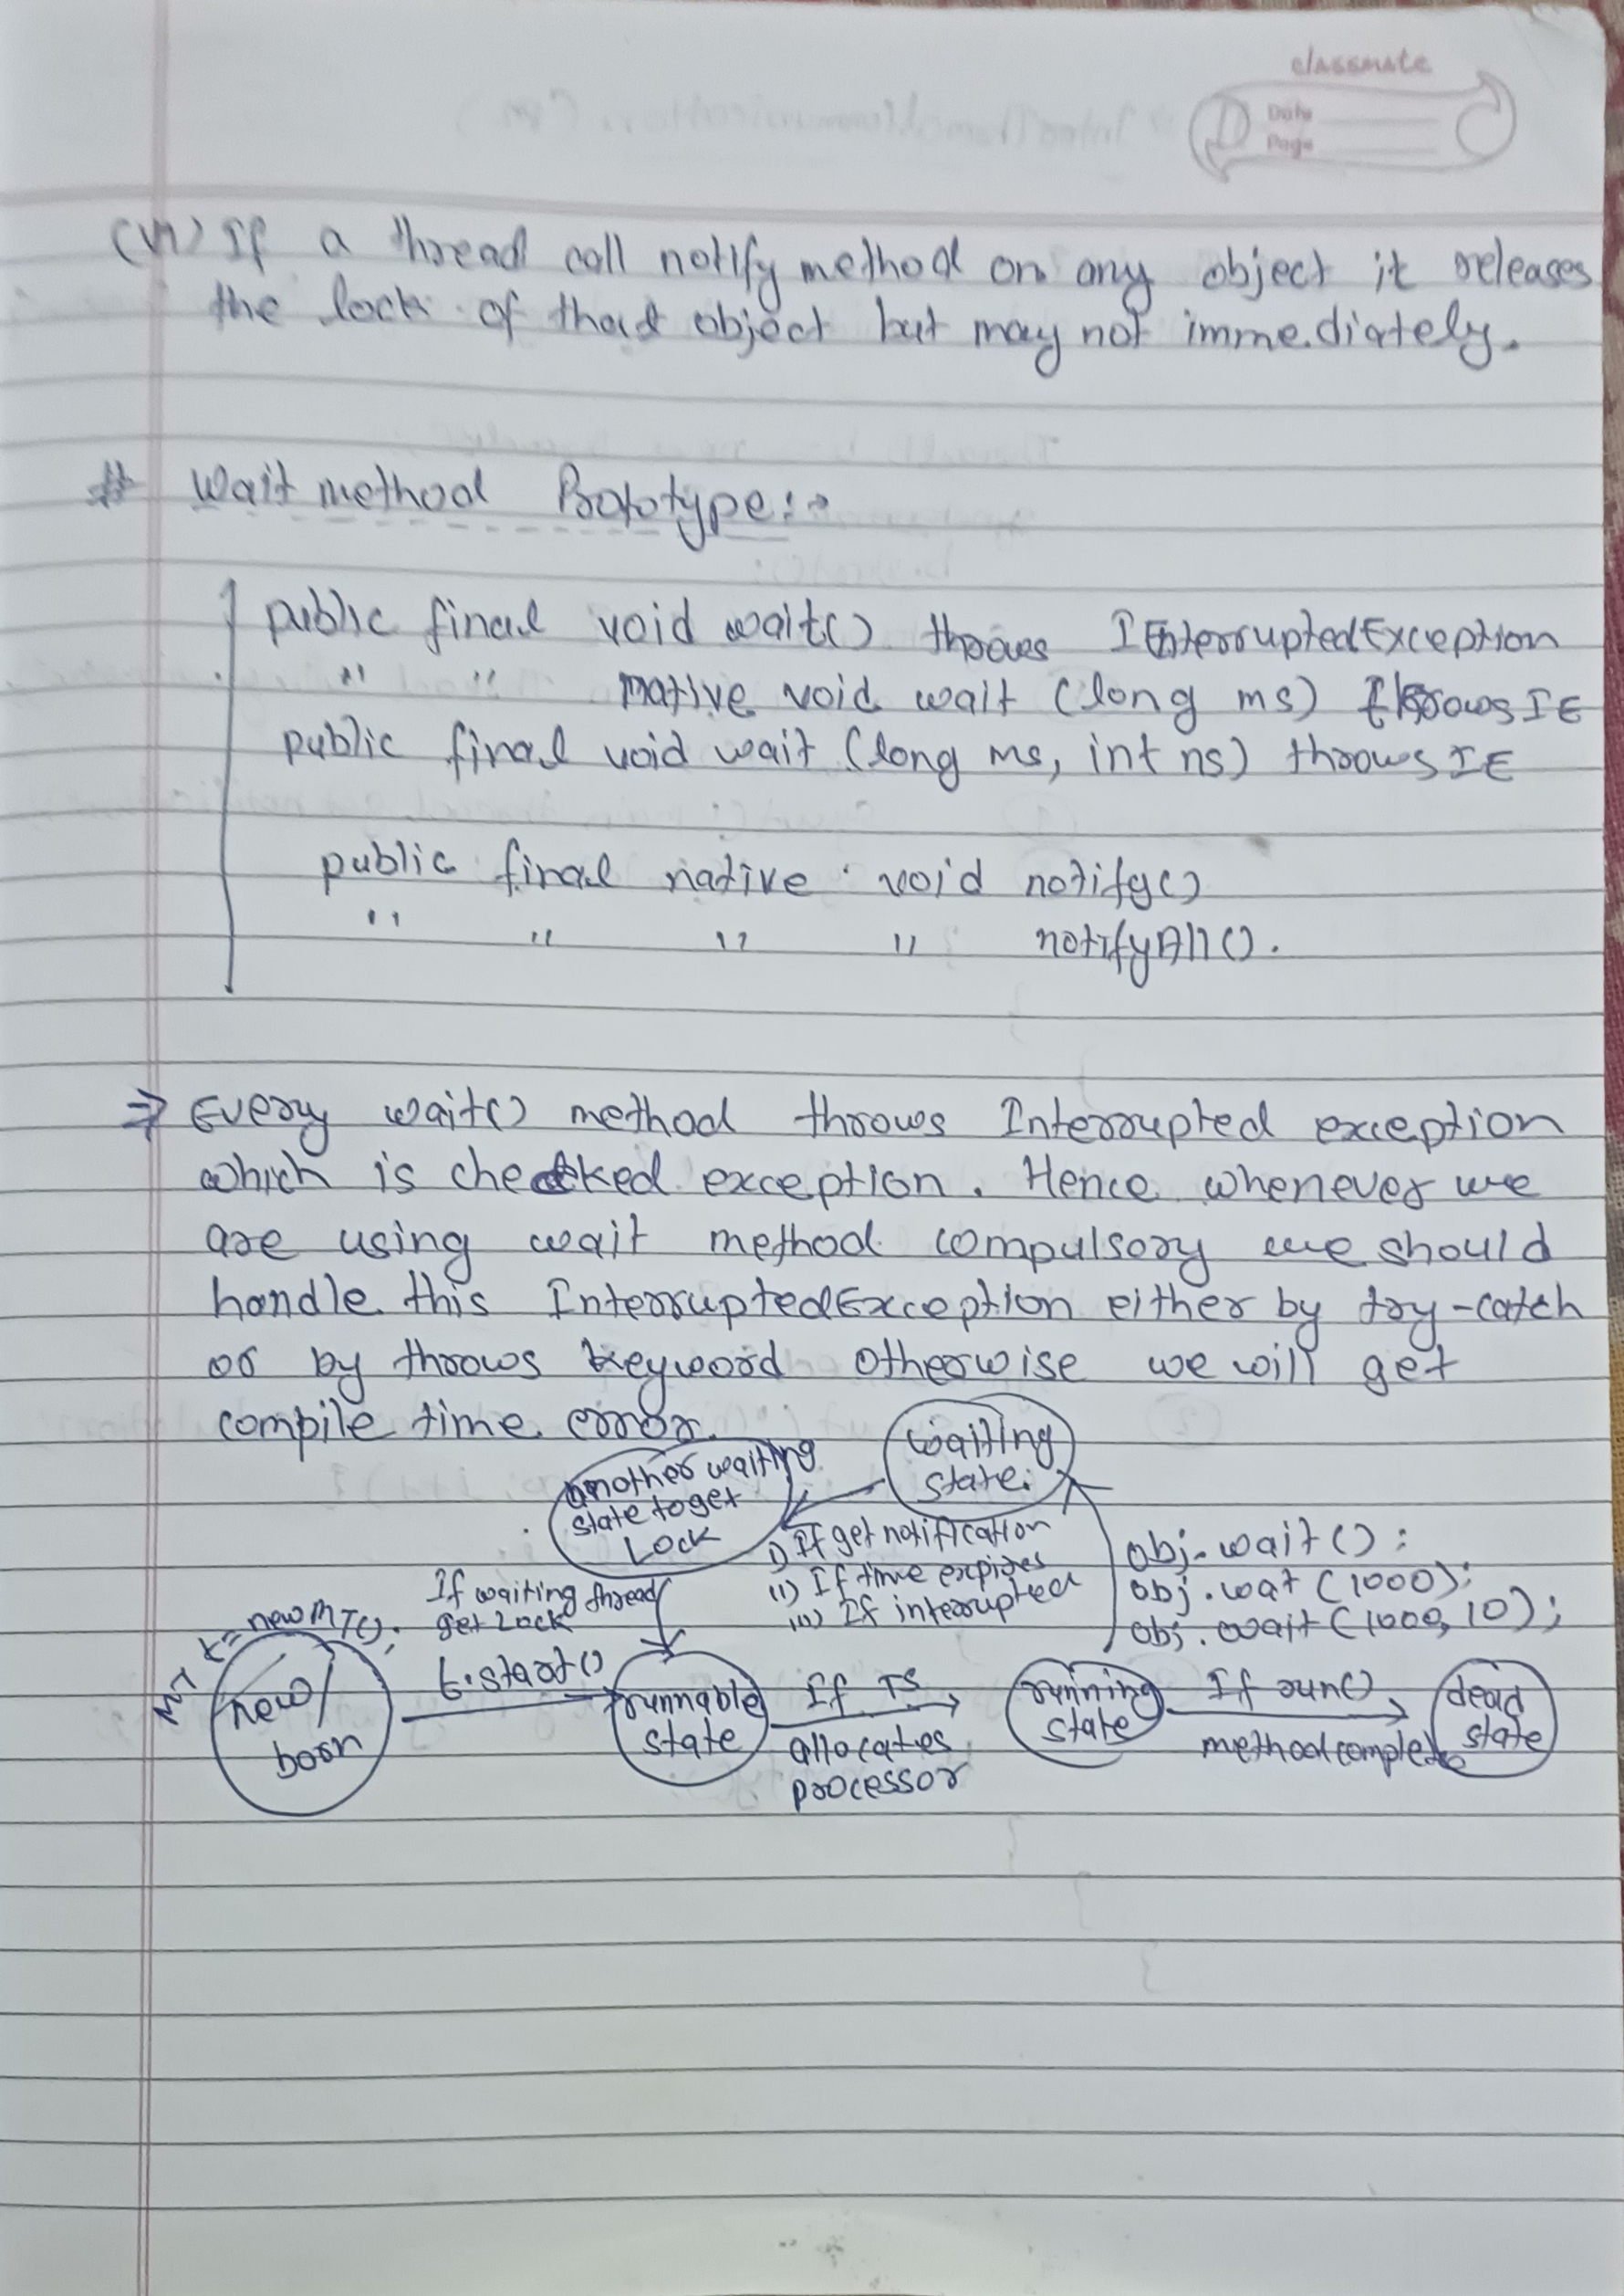 classmate
Date
Page
(VI) If a thread call notify method on any object it releases
the lock of that object but may not immediately.
# Wait method Prototype:→
public final void wait() throws InterruptedException
" " native void wait (long ms) throws IE
public final void wait (long ms, int ns) throws IE
public final native void notify()
" " " " notifyAll().
⇒ Every wait() method throws Interrupted exception
which is checked exception. Hence whenever we
are using wait method compulsory we should
handle this InterruptedException either by try-catch
or by throws keyword otherwise we will get
compile time error.
waiting
state.
another waiting
state to get
Lock
i) If get notification
(ii) If time expires
iii) If interrupted
obj.wait();
obj.wat (1000);
obj.wait (1000, 10);
If waiting thread
get Lock
MT t = new MT();
new/
born
t.start()
runnable
state
If TS
allocates
processor
running
state
If run()
method completes
dead
state